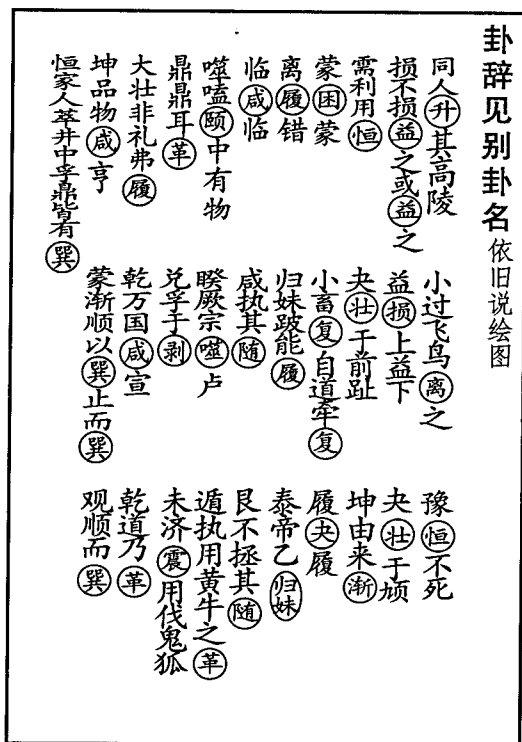 卦辞见别卦名依旧说绘图
同人升其高陵
损不损益之或益之
需利用恒
蒙困蒙
离履错
临咸临
噬嗑颐中有物
鼎鼎耳革
大壮非礼弗履
坤品物咸亨
恒家人萃井中孚鼎皆有巽
小过飞鸟离之
益损上益下
夬壮于前趾
小畜复自道牵复
归妹跛能履
咸执其随
睽厥宗噬卢
兑孚于剥
乾万国咸宣
蒙渐顺以巽止而巽
豫恒不死
夬壮于頄
坤由来渐
履夬履
泰帝乙归妹
艮不拯其随
遁执用黄牛之革
未济震用伐鬼狐
乾道乃革
观顺而巽